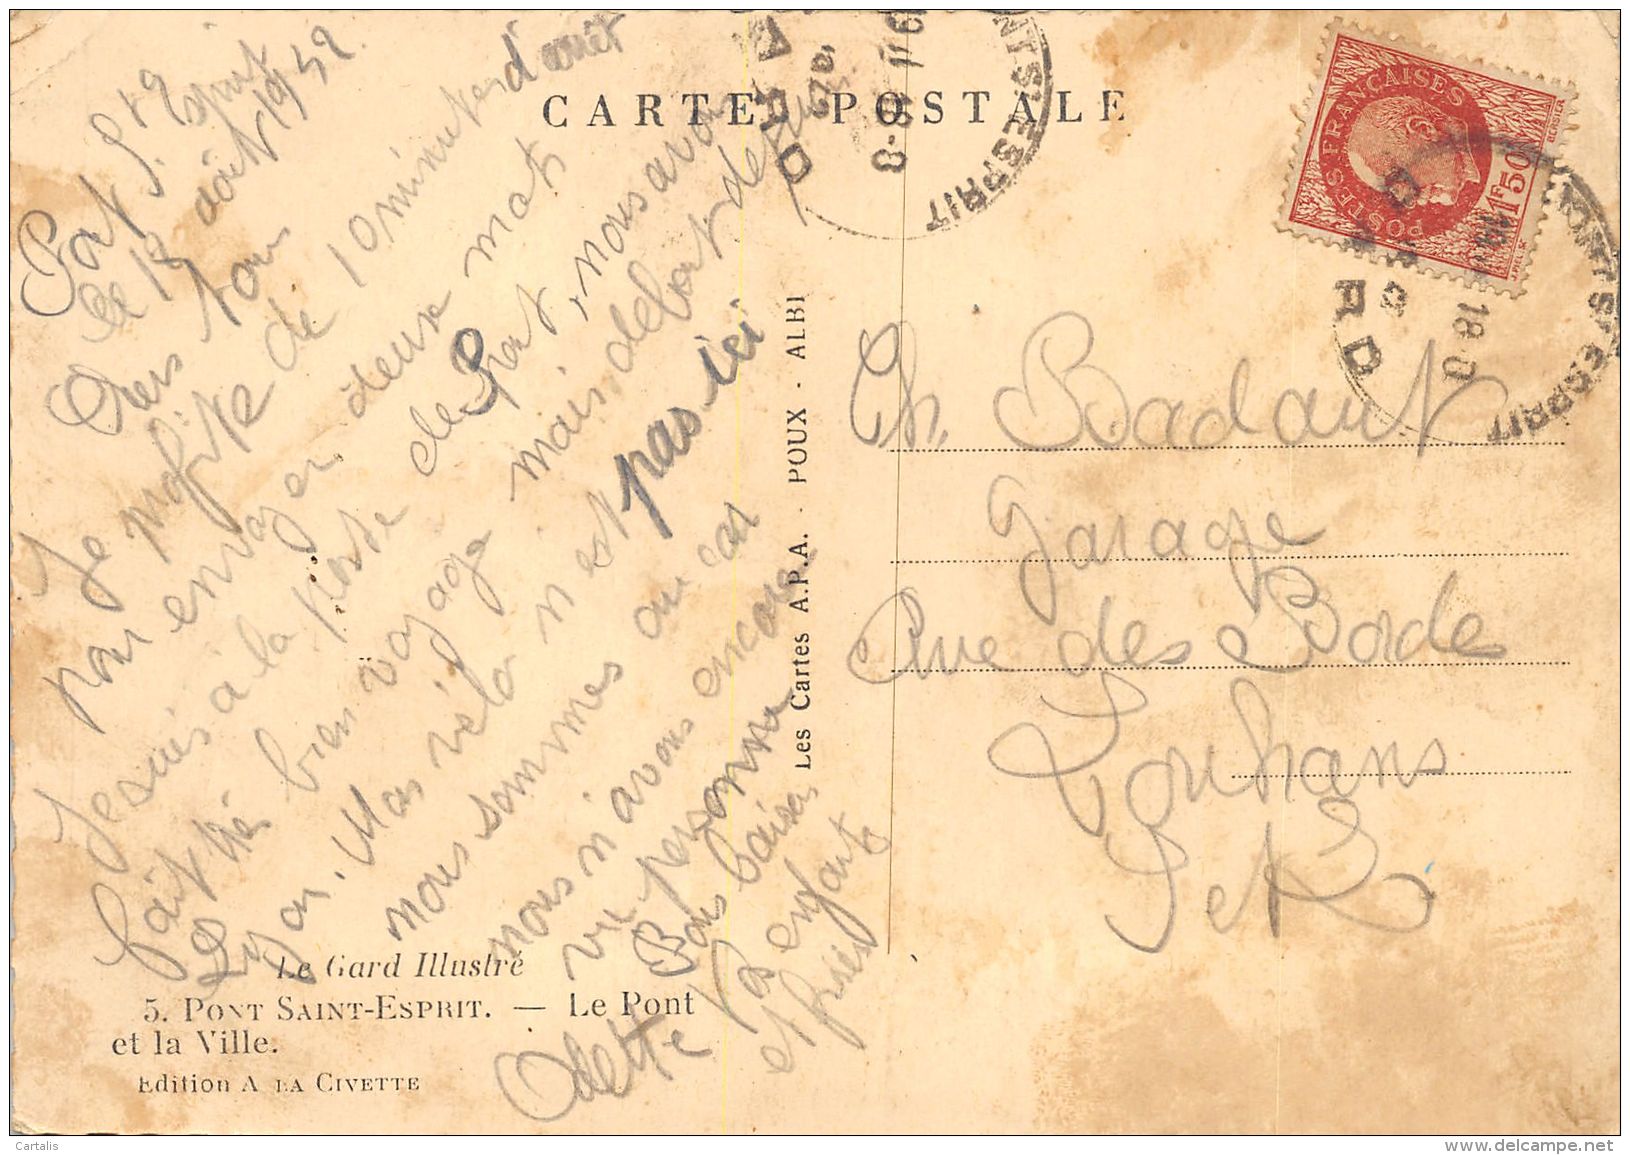 CARTE POSTALE
Pont St Esprit
le 19 août 1942.
Chers Tous
Je profite de 10 minutes d'arrêt
pour envoyer deux mots
Je suis à la poste de Pont, nous avons
fait très bien voyage mais debout depuis
Lyon. Mon vélo n'est pas ici
nous sommes au car
nous n'avons encore
vu personne
Bons baisers
enfants
et frisés
Odette
Les Cartes A.P.A. - POUX - ALBI
POSTES FRANÇAISES
1F50
PONT-ST-ESPRIT
GARD
PONT-ST-ESPRIT
GARD
18 0
Ch. Badaut
Garage
Rue des Bordes
Louhans
S et L
Le Gard Illustré
5. PONT SAINT-ESPRIT. — Le Pont
et la Ville.
Edition A LA CIVETTE
Cartalis
www.delcampe.net